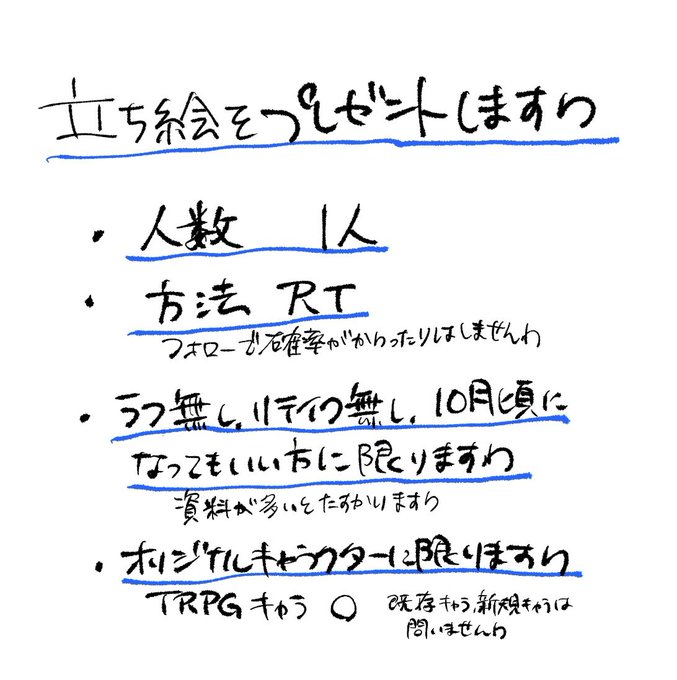 立ち絵をプレゼントしますわ
・人数 1人
・方法 RT
フォローで確率がかわったりはしませんわ
・ラフ無し、リテイク無し、10月頃に
なってもいい方に限りますわ
資料が多いとたすかりますわ
・オリジナルキャラクターに限りますわ
TRPGキャラ ○ 既存キャラ、新規キャラは
問いませんわ